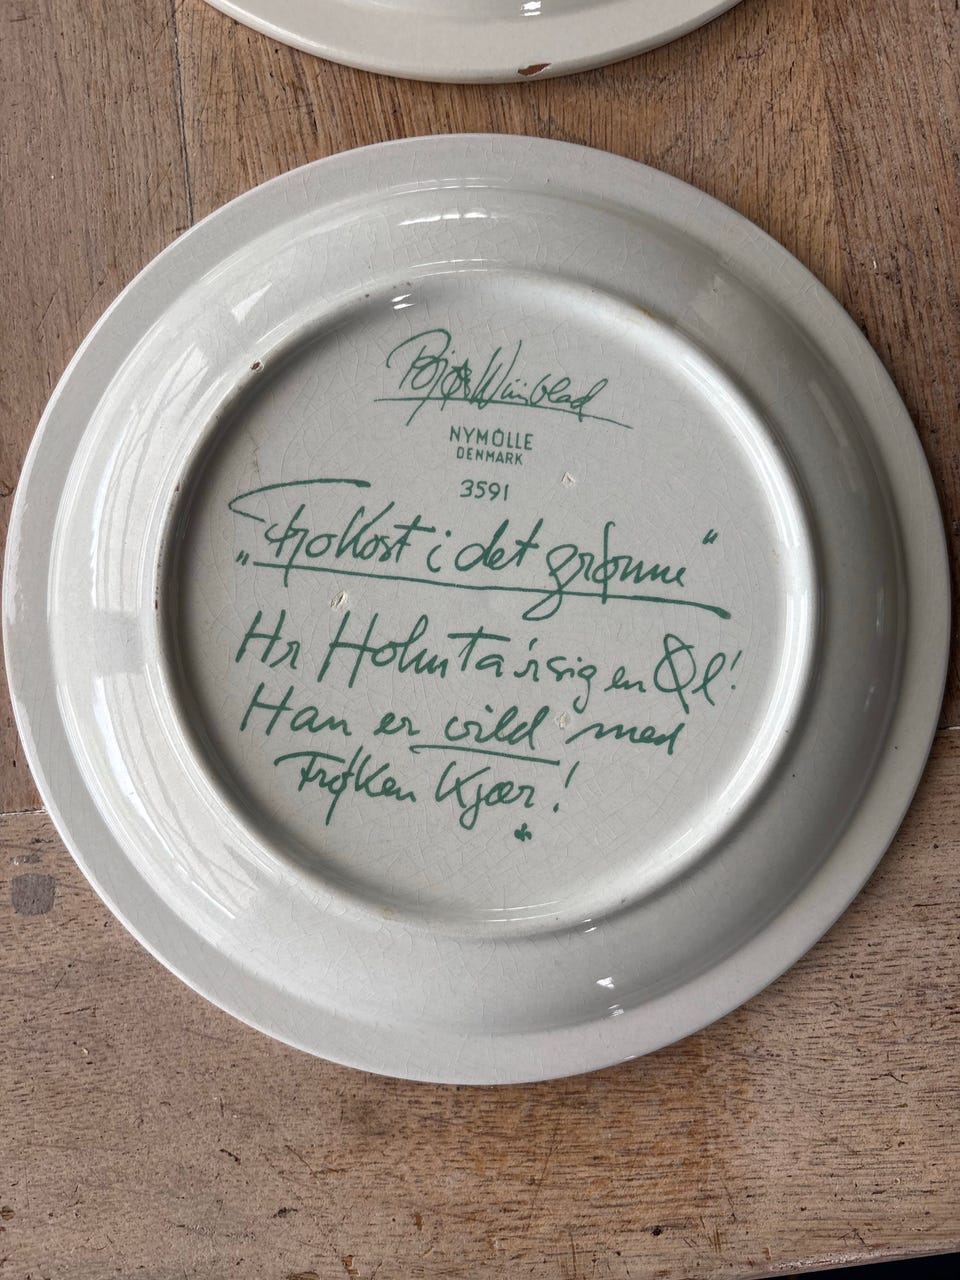 Bjørn Wiinblad
NYMÖLLE
DENMARK
3591
„Frokost i det grønne“
Hr Holm ta'r sig en Øl!
Han er vild med
Frøken Kjær!